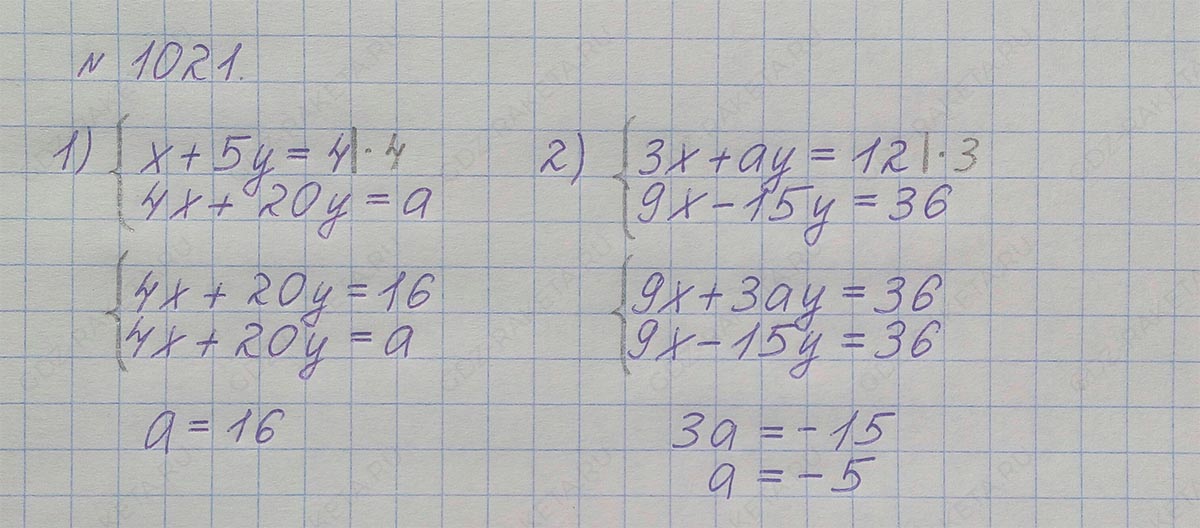 № 1021.
1) { x + 5y = 4 | · 4
4x + 20y = a
{ 4x + 20y = 16
4x + 20y = a
a = 16
2) { 3x + ay = 12 | · 3
9x - 15y = 36
{ 9x + 3ay = 36
9x - 15y = 36
3a = -15
a = -5
GDZ-RAKETA.RU